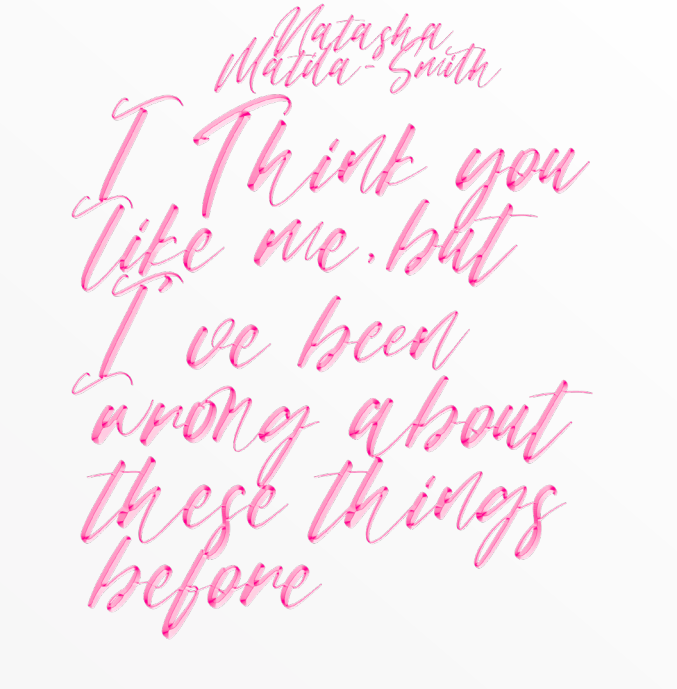 Natasha
Matila-Smith
I Think you
like me, but
I've been
wrong about
these things
before